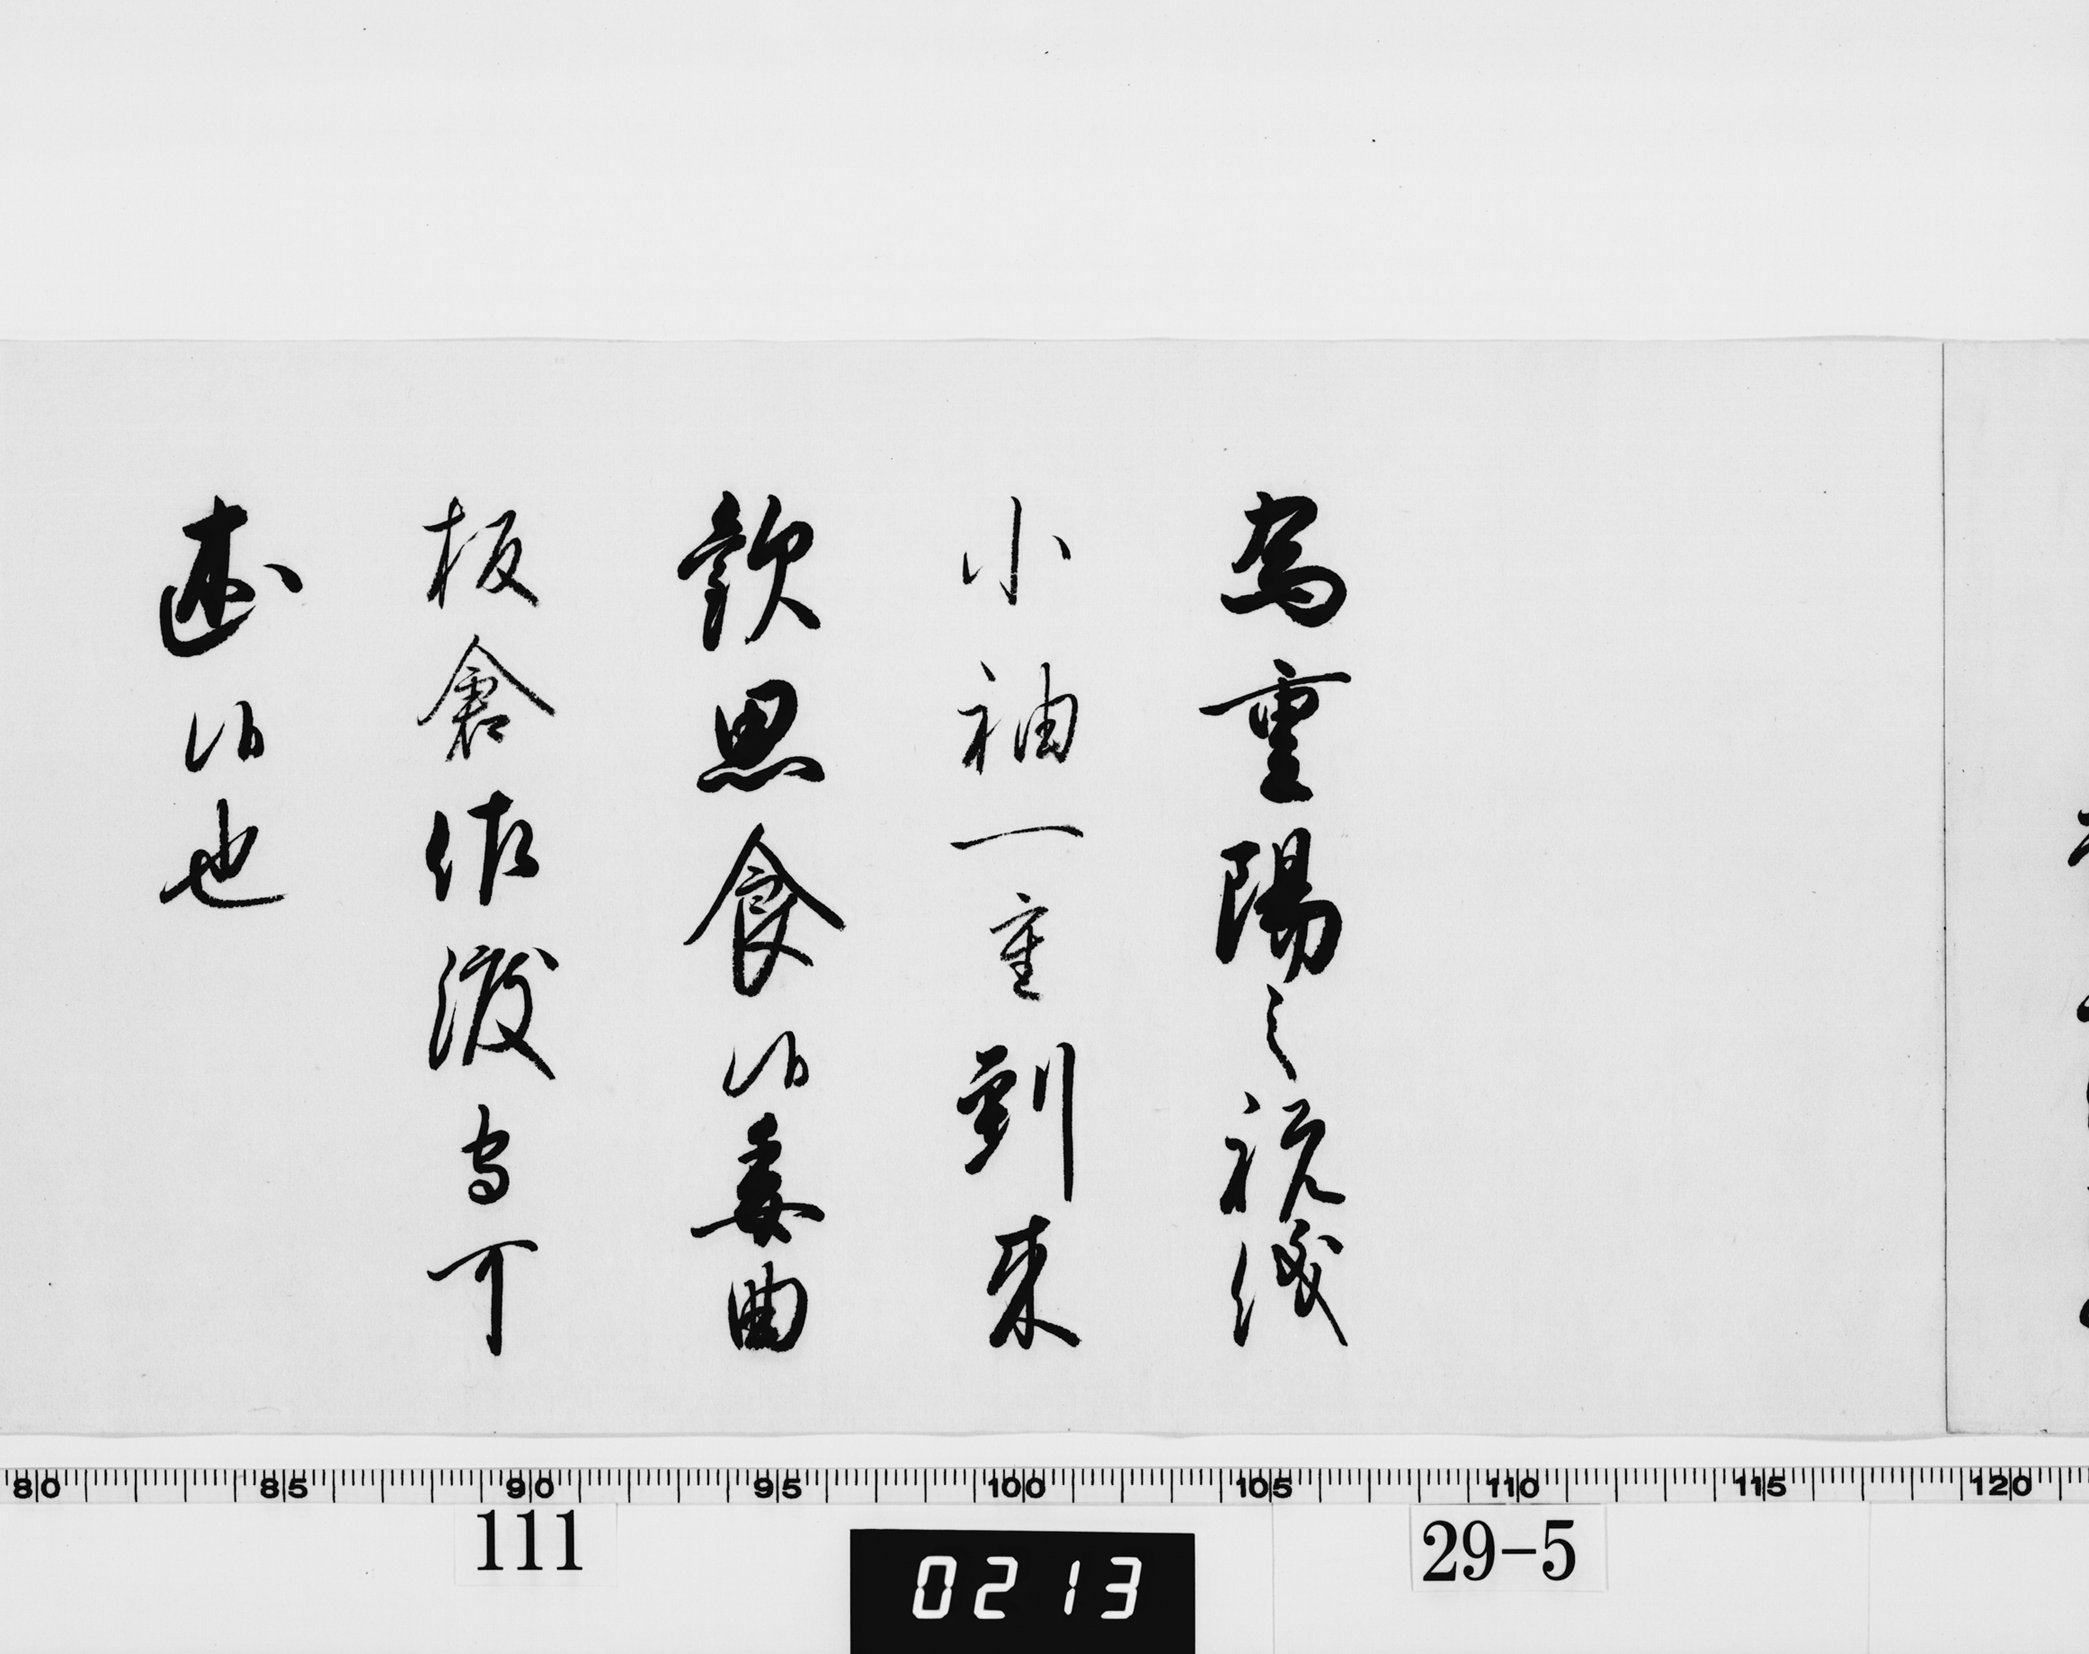 為重陽之祝儀
小袖一重到来
歓思食候委曲
板倉佐渡守可
述候也
80 85 90 95 100 105 110 115 120
111
0213
29-5